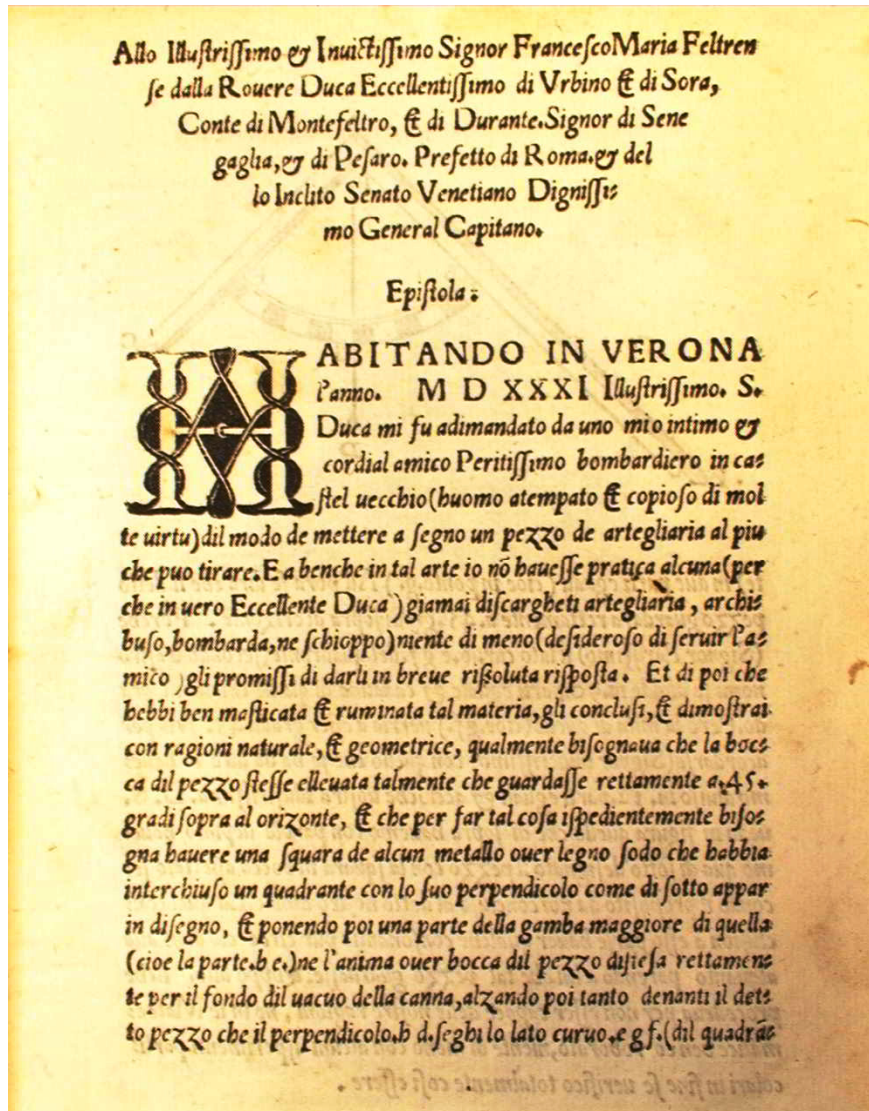 Allo Illuſtriſſimo & Inuictiſſimo Signor Franceſco Maria Feltren
ſe dalla Rouere Duca Eccellentiſſimo di Vrbino & di Sora,
Conte di Montefeltro, & di Durante. Signor di Sene
gaglia, & di Peſaro. Prefetto di Roma. & del
lo Inclito Senato Venetiano Digniſſi-
mo General Capitano.
Epiſtola.
HABITANDO IN VERONA
l'anno. M D XXXI Illuſtriſſimo. S.
Duca mi fu adimandato da uno mio intimo &
cordial amico Peritiſſimo bombardiero in ca-
ſtel uecchio (huomo atempato & copioſo di mol
te uirtu) dil modo de mettere a ſegno un pezzo de artegliaria al piu
che puo tirare. E a benche in tal arte io nõ haueſſe pratica alcuna (per
che in uero Eccellente Duca) giamai diſcargheti artegliaria, archi-
buſo, bombarda, ne ſchioppo) niente di meno (deſideroſo di ſeruir l'a-
mico) gli promiſſi di darli in breue riſſoluta riſpoſta. Et di poi che
hebbi ben maſticata & ruminata tal materia, gli concluſi, & dimoſtrai
con ragioni naturale, & geometrice, qualmente biſognaua che la boc-
ca dil pezzo ſteſſe elleuata talmente che guardaſſe rettamente a.45.
gradi ſopra al orizonte, & che per far tal coſa iſpedientemente biſo-
gna hauere una ſquara de alcun metallo ouer legno ſodo che habbia
interchiuſo un quadrante con lo ſuo perpendicolo come di ſotto appar
in diſegno, & ponendo poi una parte della gamba maggiore di quella
(cioe la parte.b e.) ne l'anima ouer bocca dil pezzo diſteſa rettamen-
te per il fondo dil uacuo della canna, alzando poi tanto denanti il det-
to pezzo che il perpendicolo.h d.ſeghi lo lato curuo.e g f.(dil quadrã-